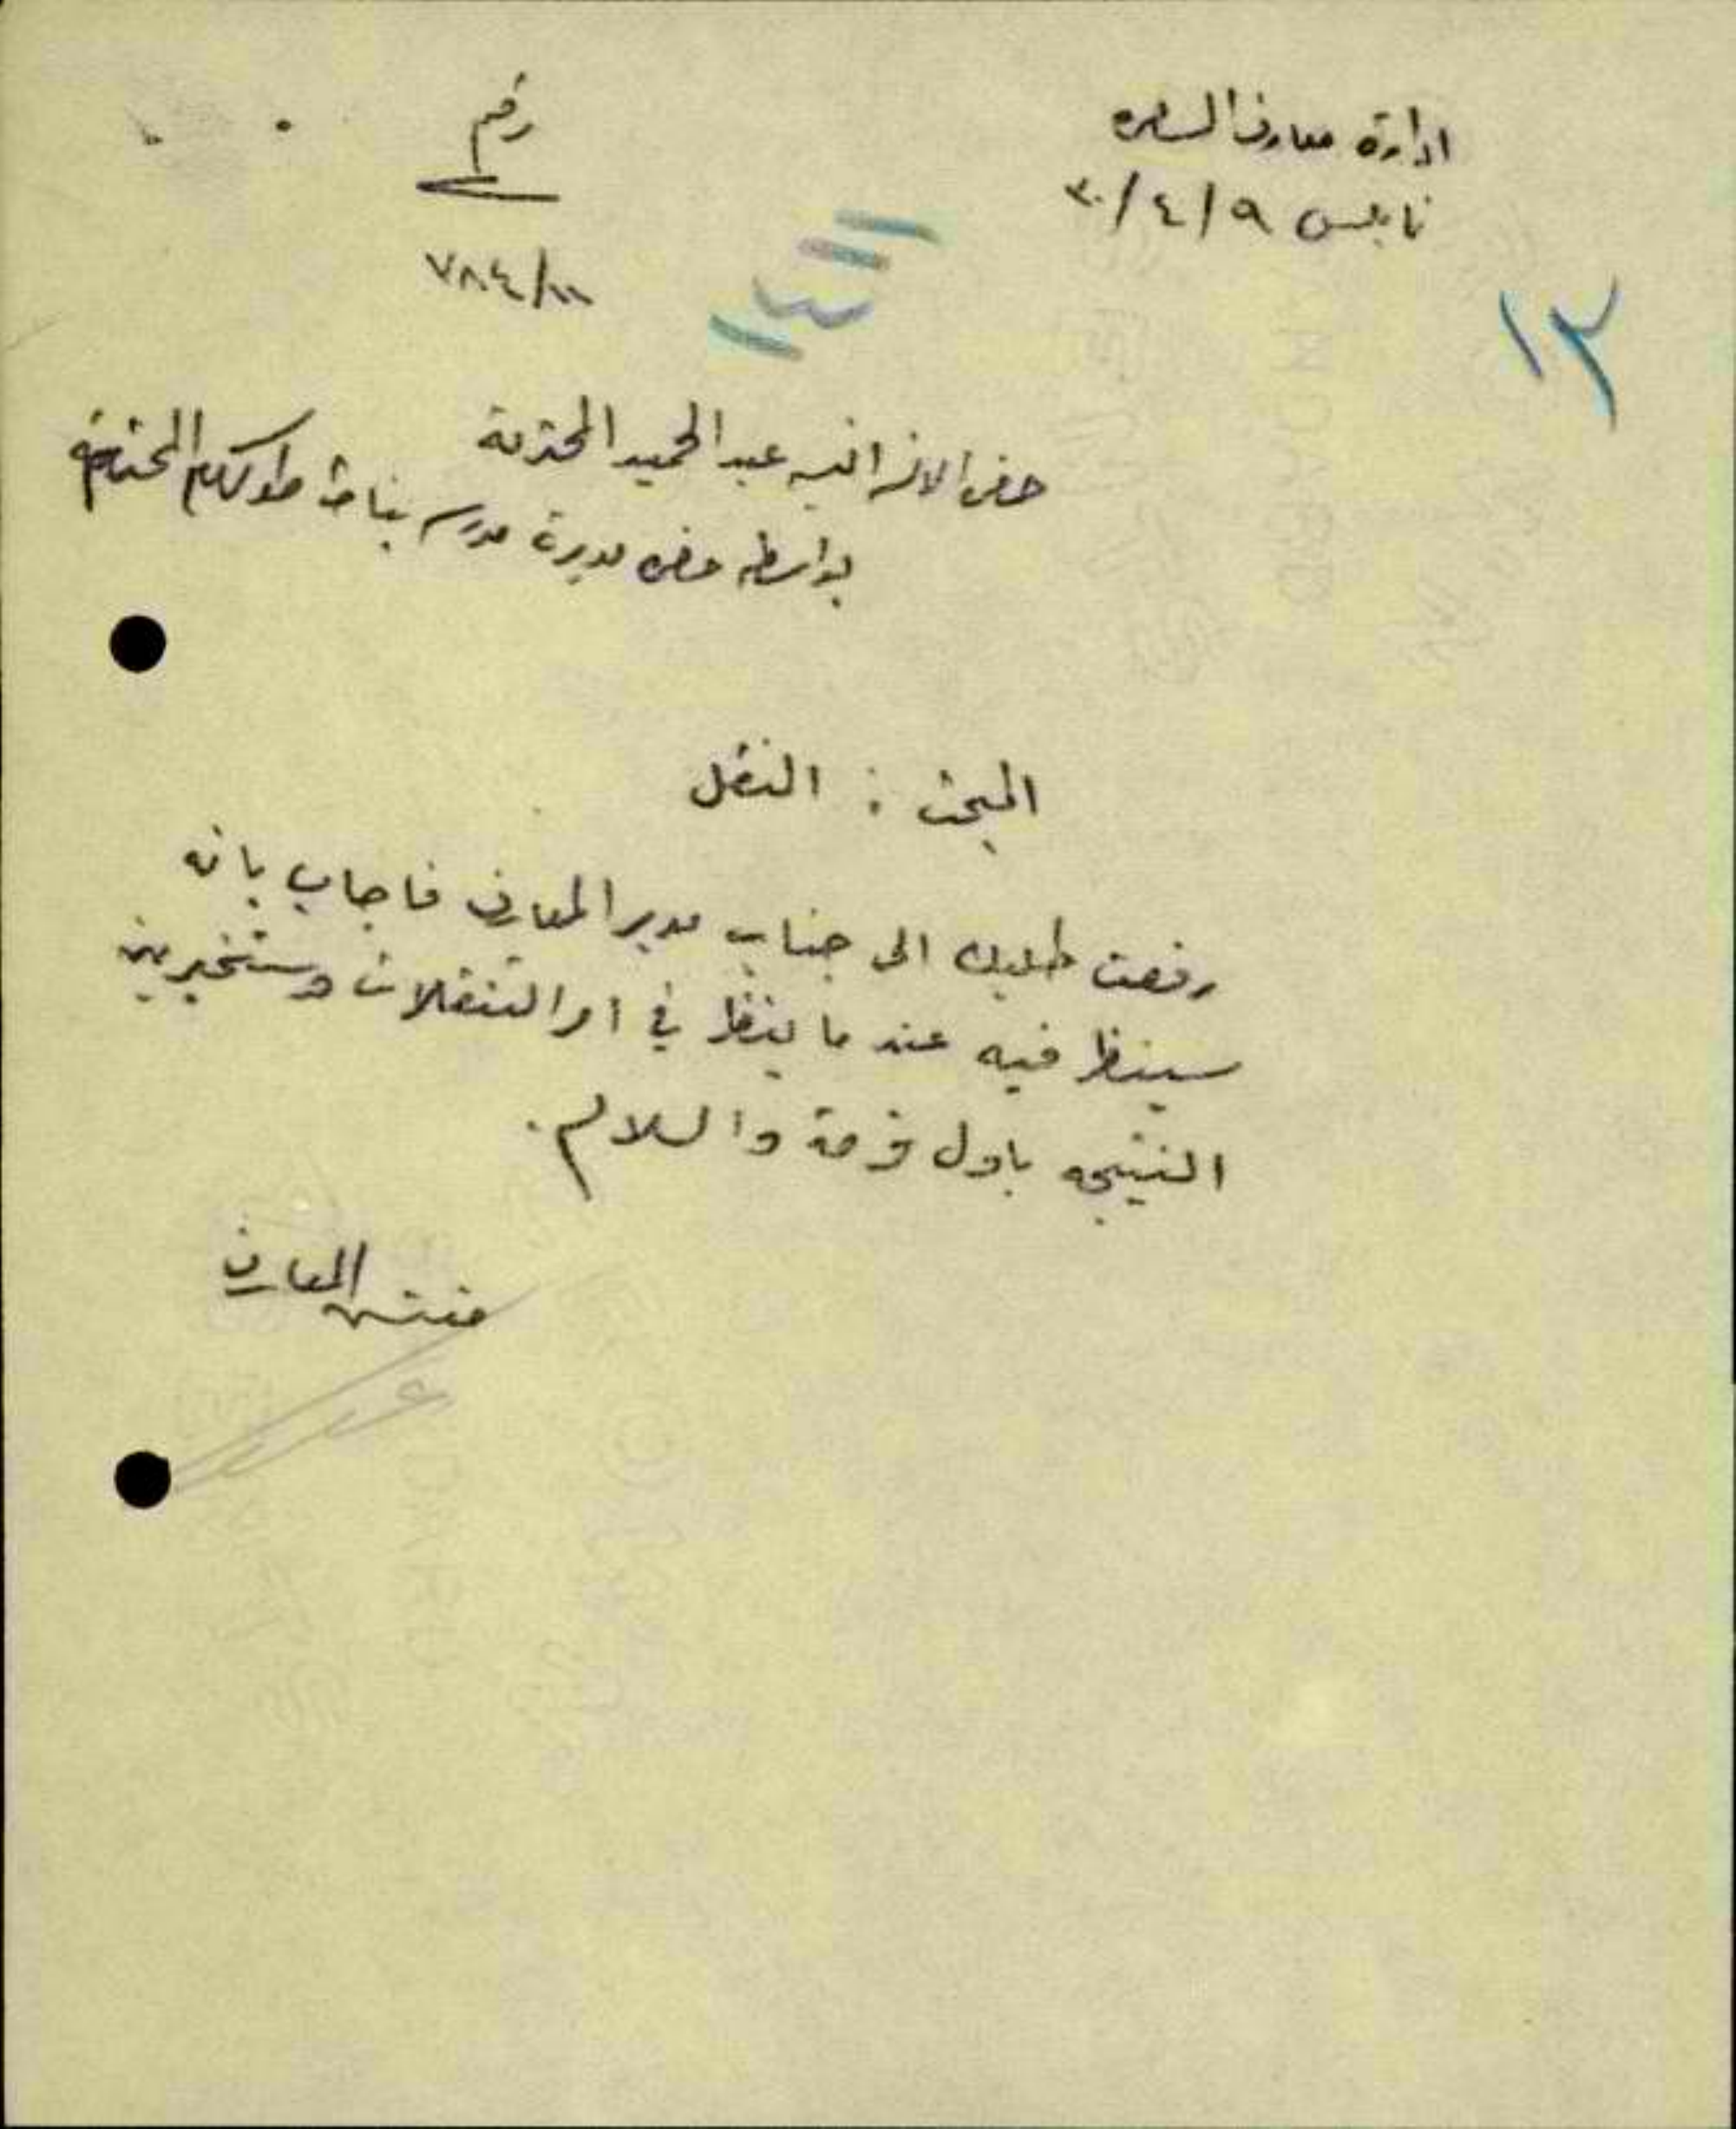 ادارة معارف السامره
نابلس ٩/٤/٣٠
رقم
٧٨٤/١١
١٢
حضرة الانسه انيسه عبد الحميد المحترمة
بواسطه حضرة مديرة مدرسه بنات طولكرم المحترمة
المبحث : النقل
رفعت طلبك الى جناب مدير المعارف فاجاب بانه
سينظر فيه عند ما ينظر في امر التنقلات وستخبرين
النتيجه باول فرصة والسلام .
مفتش المعارف